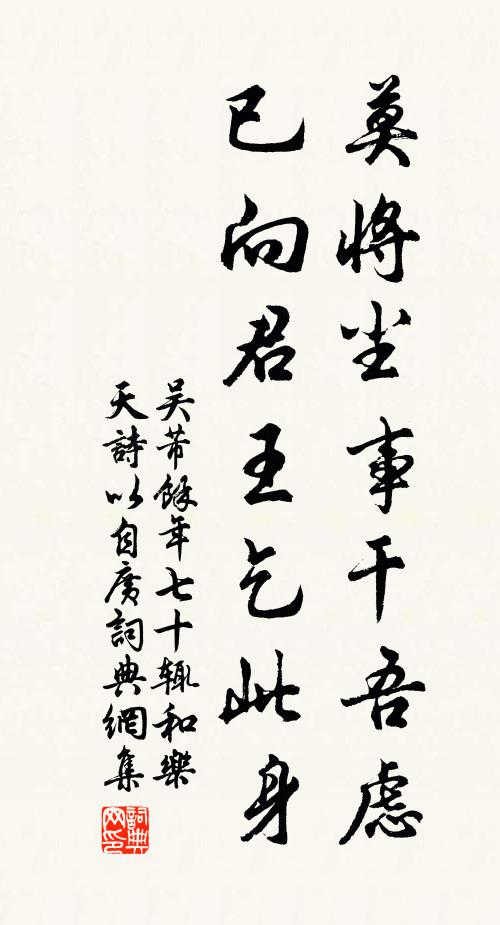 莫將塵事干吾慮
已向君王乞此身
吳芾餘年七十輒和樂
天詩以自廣詞典網集
詞典网印